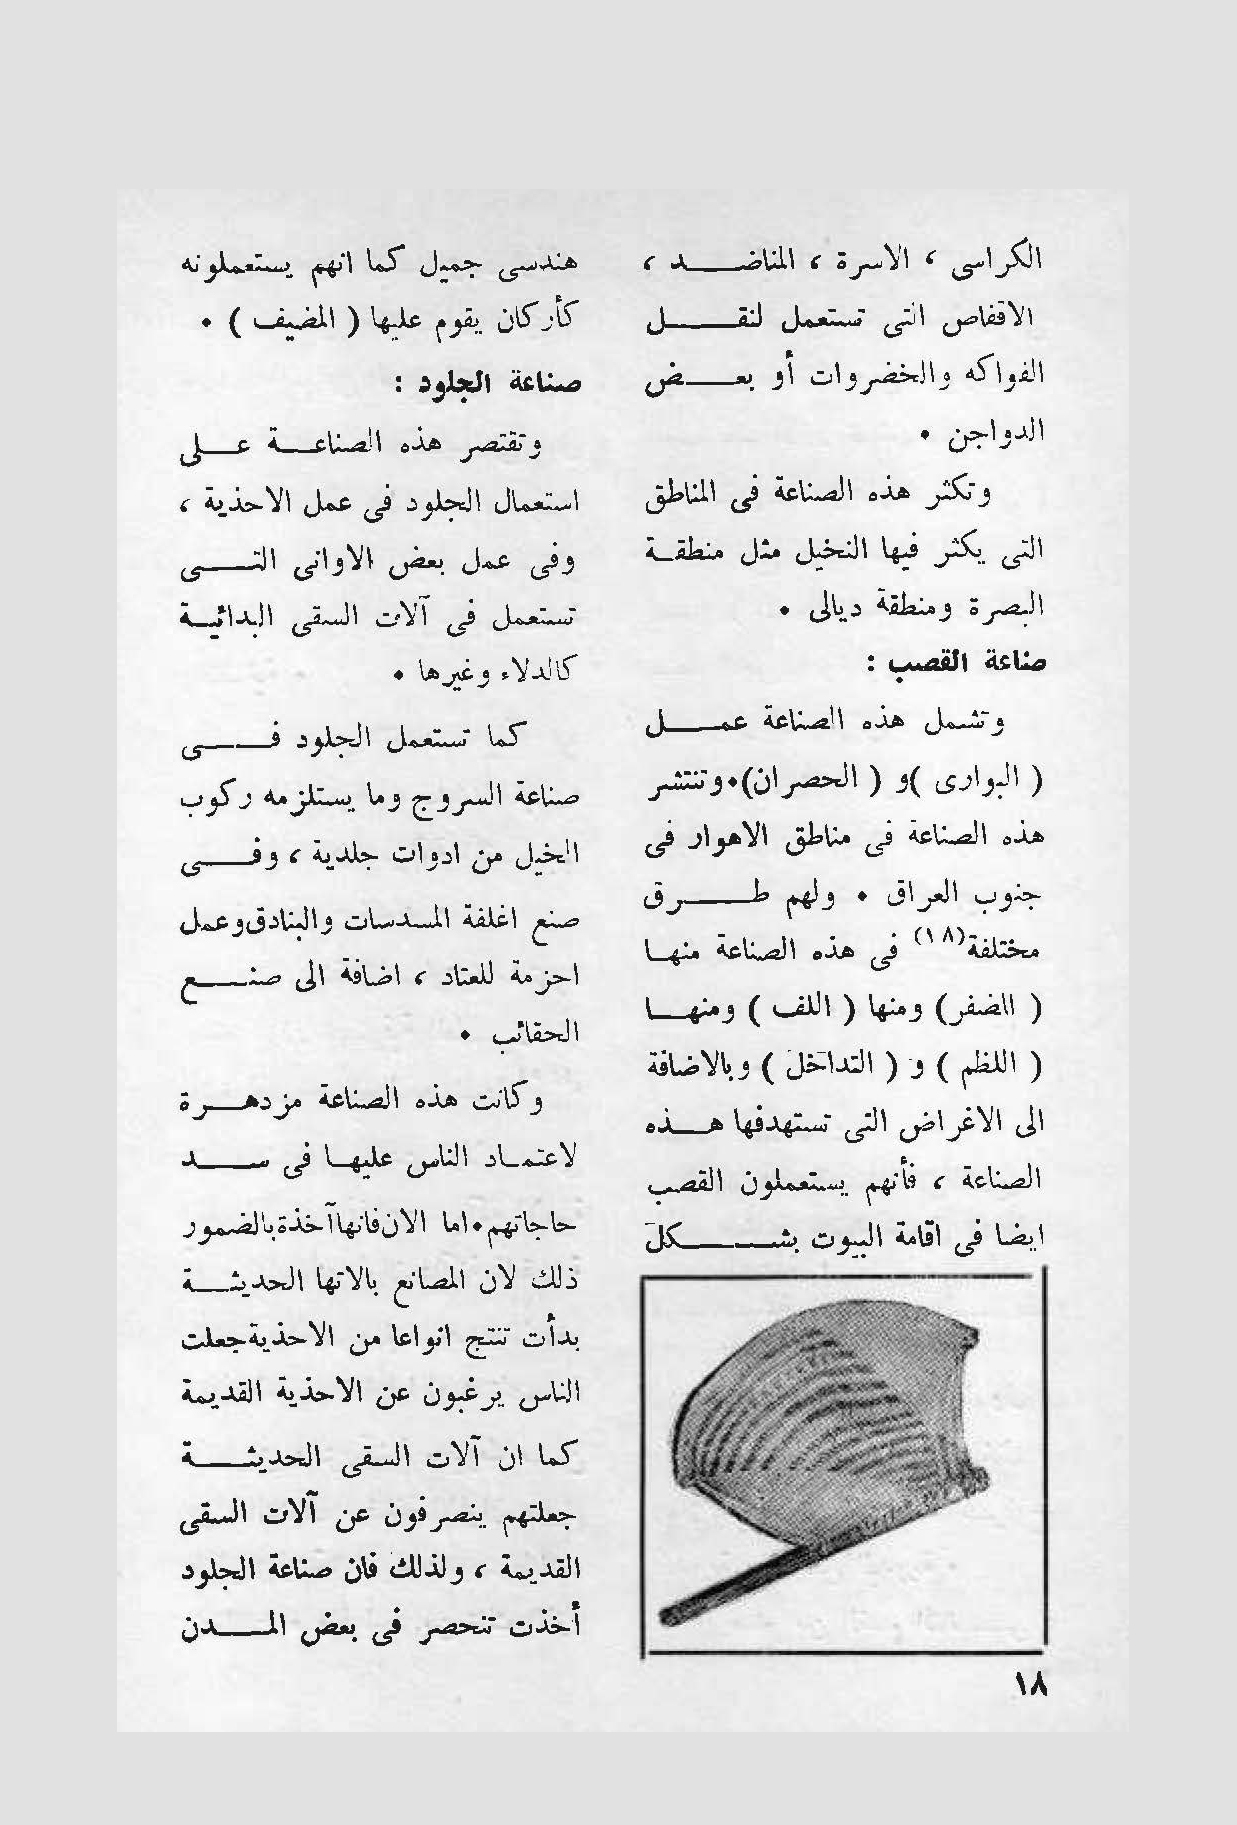 الكراسى ، الاسرة ، المناضد ،
الاقفاص التى تستعمل لنقل
الفواكه والخضروات أو بعض
الدواجن ٠
وتكثر هذه الصناعة فى المناطق
التى يكثر فيها النخيل مثل منطقة
البصرة ومنطقة ديالى ٠
صناعة القصب :
وتشمل هذه الصناعة عمل
( البوارى )و ( الحصران)٠وتنتشر
هذه الصناعة فى مناطق الاهوار فى
جنوب العراق ٠ ولهم طرق
مختلفة(١٨) فى هذه الصناعة منها
( الضفر) ومنها ( اللف ) ومنها
( اللظم ) و ( التداخل ) وبالاضافة
الى الاغراض التى تستهدفها هذه
الصناعة ، فأنهم يستعملون القصب
ايضا فى اقامة البيوت بشكل
هندسى جميل كما انهم يستعملونه
كأركان يقوم عليها ( المضيف ) ٠
صناعة الجلود :
وتقتصر هذه الصناعة على
استعمال الجلود فى عمل الاحذية ،
وفى عمل بعض الاوانى التى
تستعمل فى آلات السقى البدائية
كالدلاء وغيرها ٠
كما تستعمل الجلود فى
صناعة السروج وما يستلزمه ركوب
الخيل من ادوات جلدية ، وفى
صنع اغلفة المسدسات والبنادق وعمل
احزمة للعتاد ، اضافة الى صنع
الحقائب ٠
وكانت هذه الصناعة مزدهرة
لاعتماد الناس عليها فى سد
حاجاتهم٠اما الان فانها آخذة بالضمور
ذلك لان المصانع بالاتها الحديثة
بدأت تنتج انواعا من الاحذية جعلت
الناس يرغبون عن الاحذية القديمة
كما ان آلات السقى الحديثة
جعلتهم ينصرفون عن آلات السقى
القديمة ، ولذلك فان صناعة الجلود
أخذت تنحصر فى بعض المدن
١٨